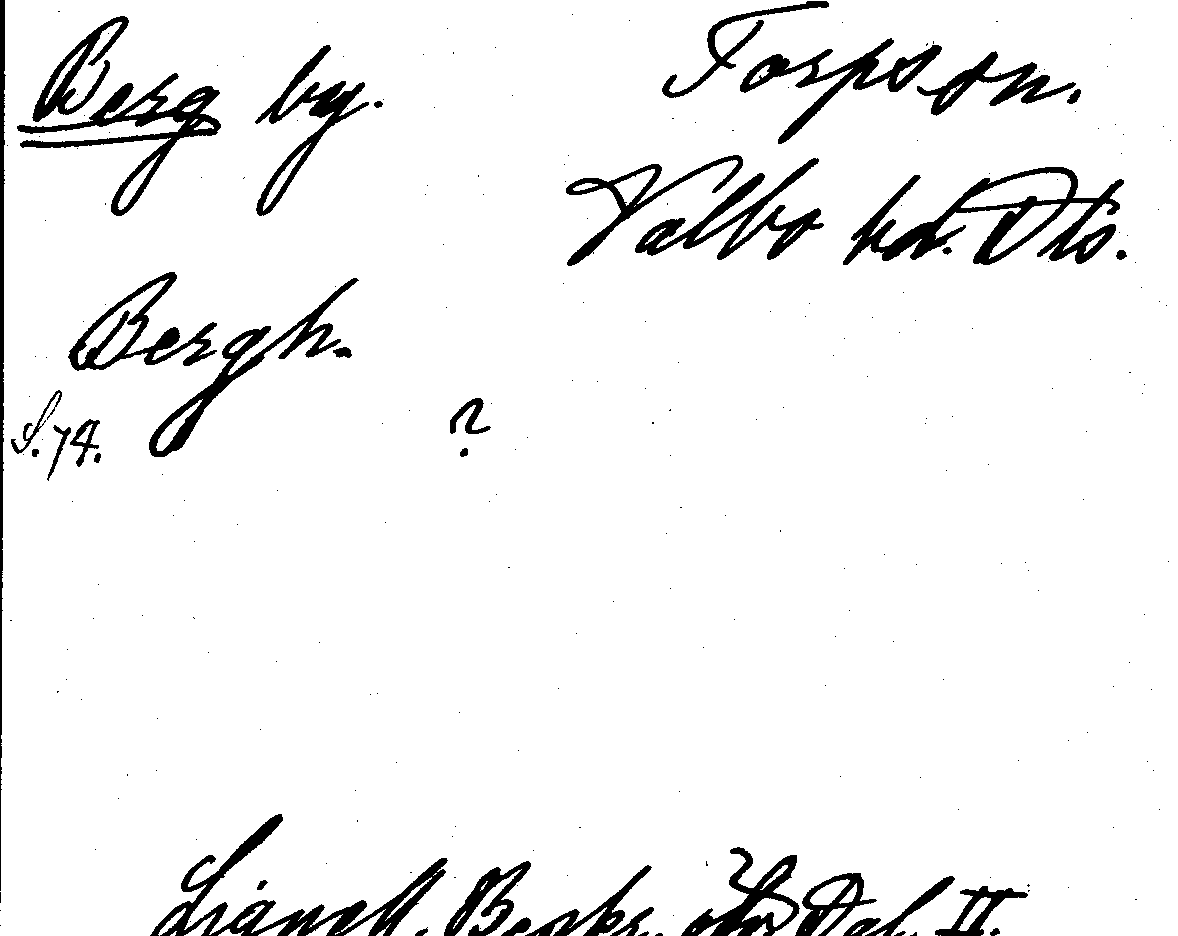 Berg by.
Torpsön.
Valbo hd. Dls.
Bergh.
S. 74.
?
Lignell. Beskr. öfv Dal. II.